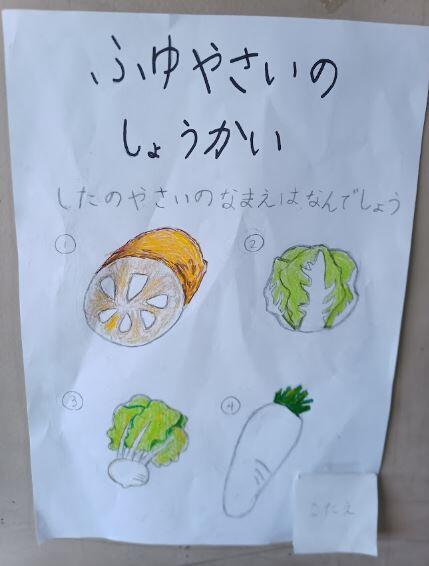 ふゆやさいの
しょうかい
したのやさいのなまえはなんでしょう
① ②
③ ④
こたえ